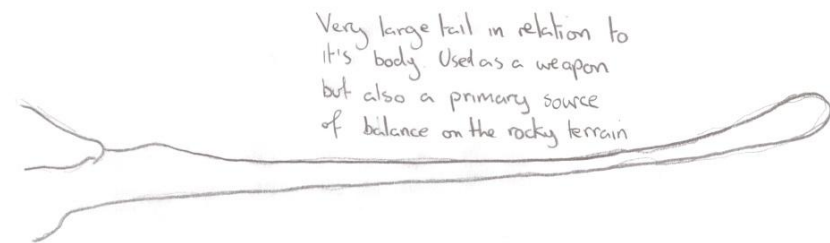 Very large tail in relation to
it's body. Used as a weapon
but also a primary source
of balance on the rocky terrain